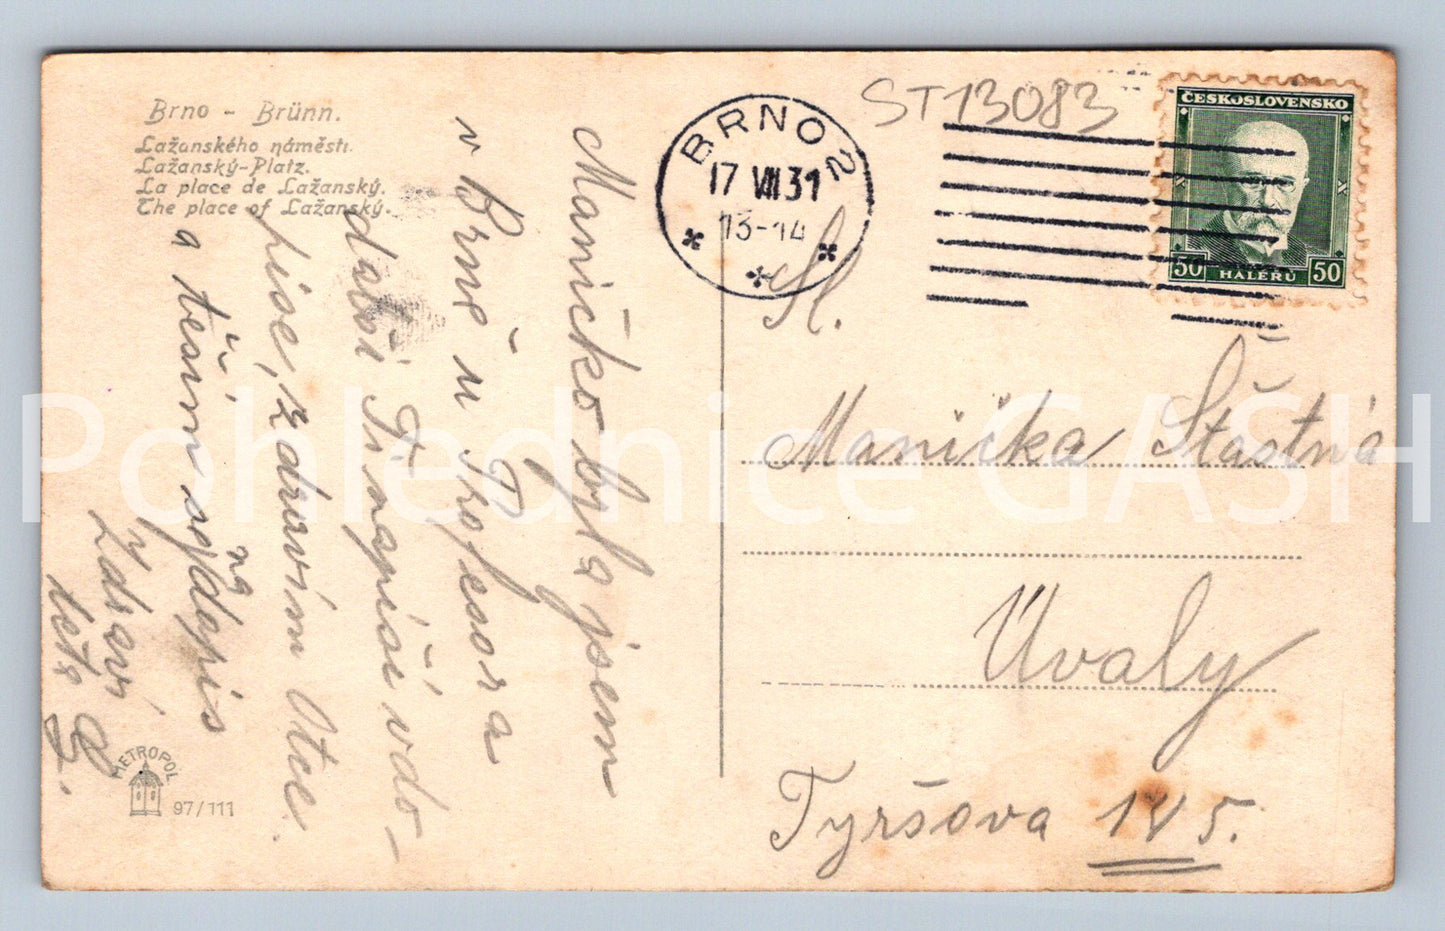 Brno - Brünn.
Lažanského náměstí.
Lažanský-Platz.
La place de Lažanský.
The place of Lažanský.
Maničko byla jsem
v Brně u Profesora
další Ti napíši v do-
pise, zdravím Otce
a těším se na dopis
Zdraví
teta
METROPOL
97/111
BRNO 2
17 VIII 31
13-14
ST13083
ČESKOSLOVENSKO
50 HALÉŘŮ 50
Sl.
Manička Šťastná
Úvaly
Tyršova 145.
Pohlednice GASH